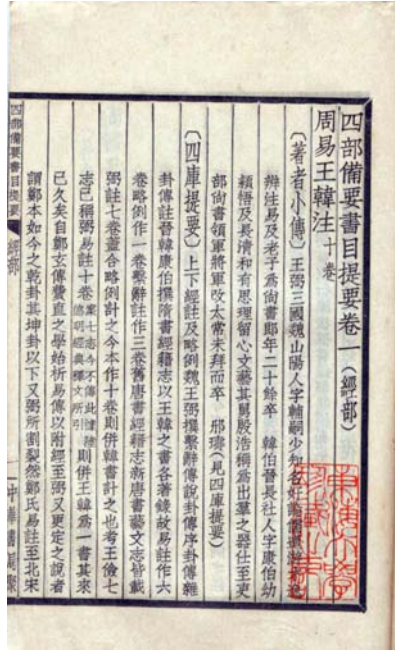 四部備要書目提要卷一（經部）
周易王韓注十卷
〔著者小傳〕王弼三國魏山陽人字輔嗣少知名好論儒道
辨注易及老子爲尚書郎年二十餘卒　韓伯晉長社人字康伯幼
穎悟及長清和有思理留心文藝其舅殷浩稱爲出羣之器仕至吏
部尚書領軍將軍改太常未拜而卒　邢璹（見四庫提要）
〔四庫提要〕上下經註及略例魏王弼撰繫辭傳說卦傳序卦傳雜
卦傳註晉韓康伯撰隋書經籍志以王韓之書各著錄故易註作六
卷略例作一卷繫辭註作三卷舊唐書經籍志新唐書藝文志皆載
弼註七卷蓋合略例計之今本作十卷則併韓書計之也考王儉七
志已稱弼易註十卷案七志今不傳此據陸德明經典釋文所引則併王韓爲一書其來
已久矣自鄭玄傳費直之學始析易傳以附經至弼又更定之說者
謂鄭本如今之乾卦其坤卦以下又弼所割裂然鄭氏易註至北宋
四部備要書目提要
經部
一
中華書局聚